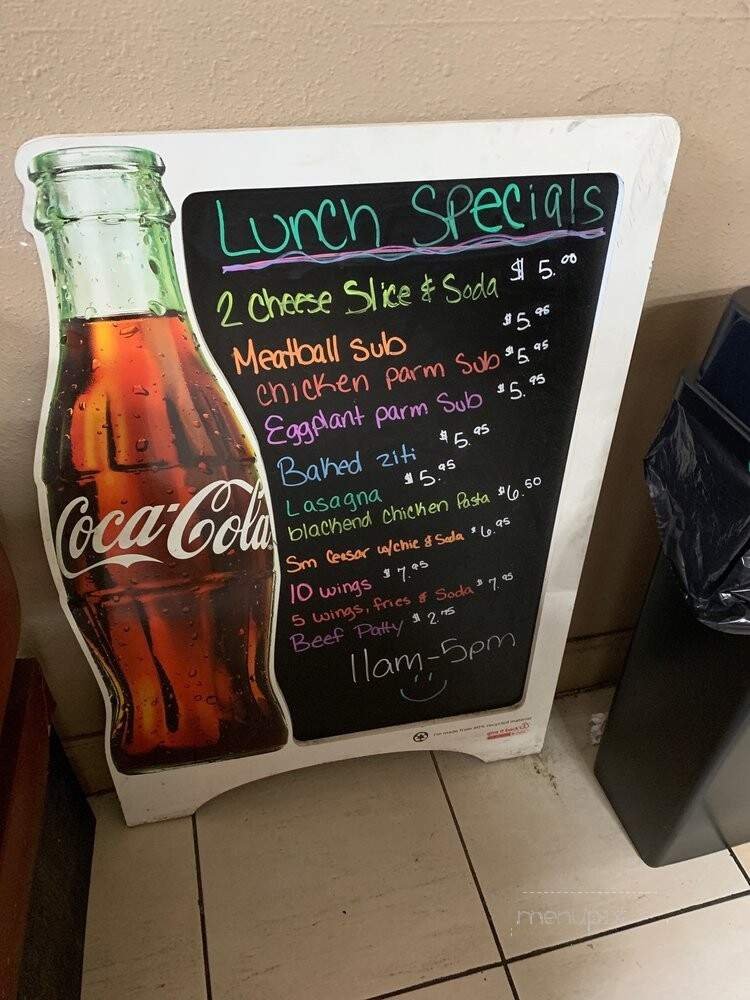 Lunch Specials
2 Cheese Slice & Soda $5.00
Meatball Sub $5.95
Chicken parm Sub $5.95
Eggplant parm Sub $5.95
Baked ziti $5.95
Lasagna $5.95
blackend chicken Pasta $6.50
Sm Ceasar w/chic & Soda $6.95
10 wings $7.95
5 wings, fries & Soda $7.95
Beef Patty $2.75
11am-5pm
Coca-Cola
I'm made from 80% recycled material
give it back
menupix